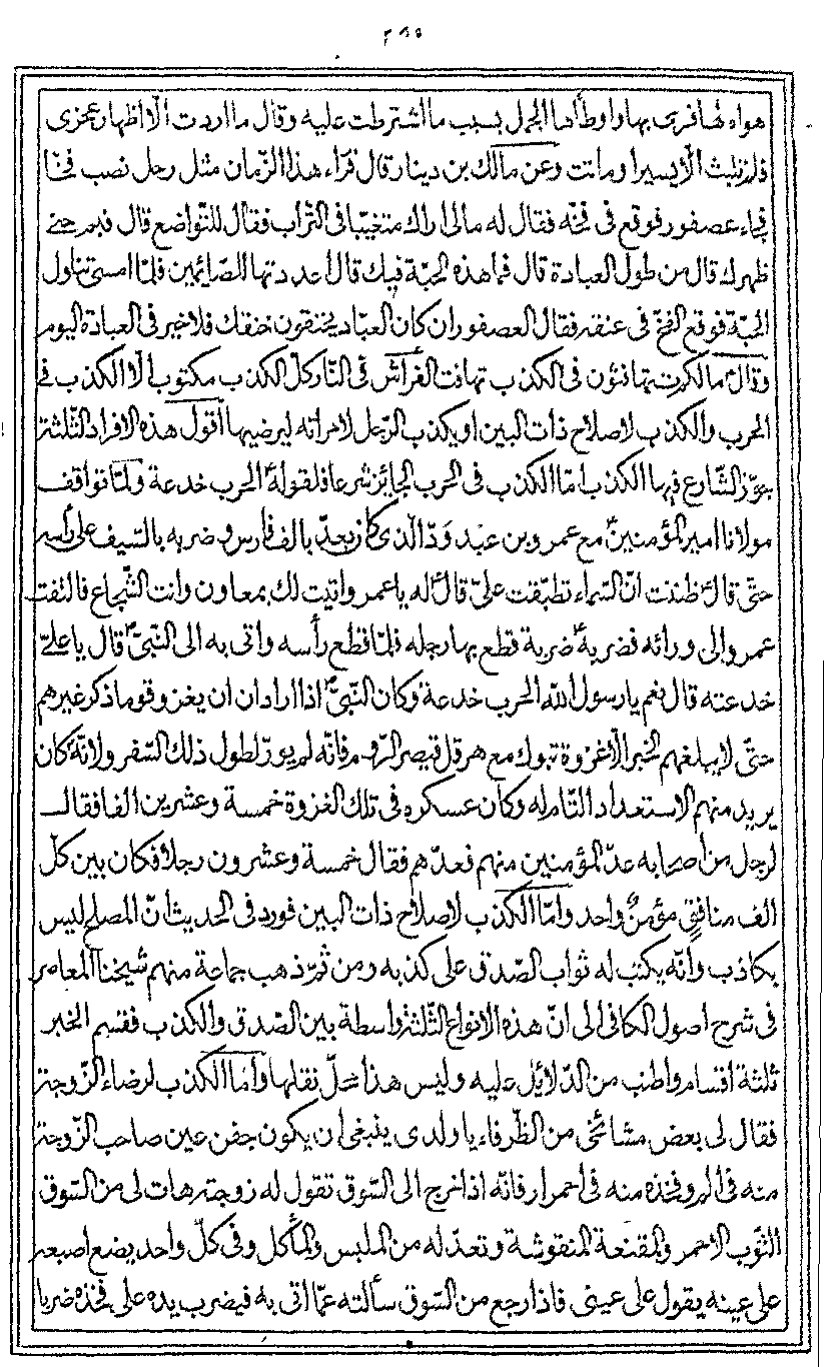 ٢٥٩
هواه لها فرمى بها واوطأها الجمل بسبب ما اشترطت عليه وقال ما اردت الّا اظهار عجزى
فلم تلبث الّا يسيرا وماتت وعن مالك بن دينار قال قرّاء هذا الزّمان مثل رجل نصب فخّا
فجاء عصفور فوقع فى فخّه فقال له مالى اراك متغيّبا فى التّراب فقال للتّواضع قال فبم حنى
ظهرك قال من طول العبادة قال فما هذه الحبّة فيك قال اعددتها للصّائمين فلمّا امسى تناول
الحبّة فوقع الفخّ فى عنقه فقال العصفور ان كان العبّاد يخنقون خنقك فلا خير فى العبادة اليوم
وقال مالكم تتهافتون فى الكذب تهافت الفراش فى النّار كلّ الكذب مكتوب الّا الكذب فى
الحرب والكذب لاصلاح ذات البين او يكذب الرّجل لامراته ليرضيها اقول هذه الافراد الثّلثة
جوّز الشّارع فيها الكذب امّا الكذب فى الحرب الجائز شرعا فلقوله الحرب خدعة ولمّا تواقف
مولانا امير المؤمنين مع عمرو بن عبد ودّ الذى كان يعدّ بالف فارس وضربه بالسّيف على رأسه
حتّى قال ظننت انّ السّماء تطبّقت علىّ قال له يا عمرو اتيت لك بمعاون وانت الشّجاع فالتفت
عمرو الى ورائه فضربه ضربة قطع بها رجله فلمّا قطع رأسه واتى به الى النّبىّ قال يا علىّ
خدعته قال نعم يا رسول اللّه الحرب خدعة وكان النّبىّ اذا اراد ان يغزو قوما ذكر غيرهم
حتّى لا يبلغهم الخبر الّا غزوة تبوك مع هرقل قيصر الرّوم فانّه لم يورّ لطول ذلك السّفر ولانّه كان
يريد منهم الاستعداد التّام له وكان عسكره فى تلك الغزوة خمسة وعشرين الفا فقال
لرجل من اصحابه عدّ المؤمنين منهم فعدّهم فقال خمسة وعشرون رجلا فكان بين كلّ
الف منافق مؤمن واحد وامّا الكذب لاصلاح ذات البين فورد فى الحديث انّ المصلح ليس
بكاذب وانّه يكتب له ثواب الصّدق على كذبه ومن ثمّ ذهب جماعة منهم شيخنا المعاصر
فى شرح اصول الكافى الى انّ هذه الانواع الثّلثة واسطة بين الصّدق والكذب فقسم الخبر
ثلثة اقسام واطنب من الدّلائل عليه وليس هذا محلّ نقلها وامّا الكذب لرضاء الزّوجة
فقال لى بعض مشائخى من الظّرفاء يا ولدى ينبغى ان يكون جفن عين صاحب الزّوجة
منه فى وفخذه منه فى احمرار فانّه اذا خرج الى السّوق تقول له زوجته هات لى من السّوق
الثّوب الاحمر والمقنعة المنقوشة وتعدّ له من الملبس والمأكل وفى كلّ واحد يضع اصبعه
على عينه يقول على عينى فاذا رجع من السّوق سألته عمّا اتى به فيضرب يده على فخذه ضربا